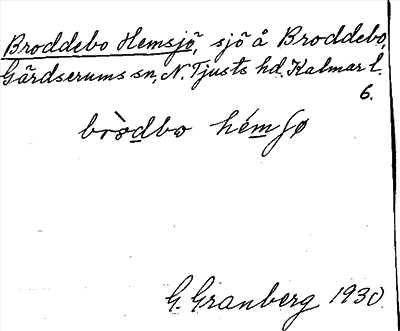 Broddebo Hemsjö, sjö å Broddebo,
Gärdserums sn, N. Tjusts hd. Kalmar l.
6.
bròdbo hémʃø
G. Granberg 1930.